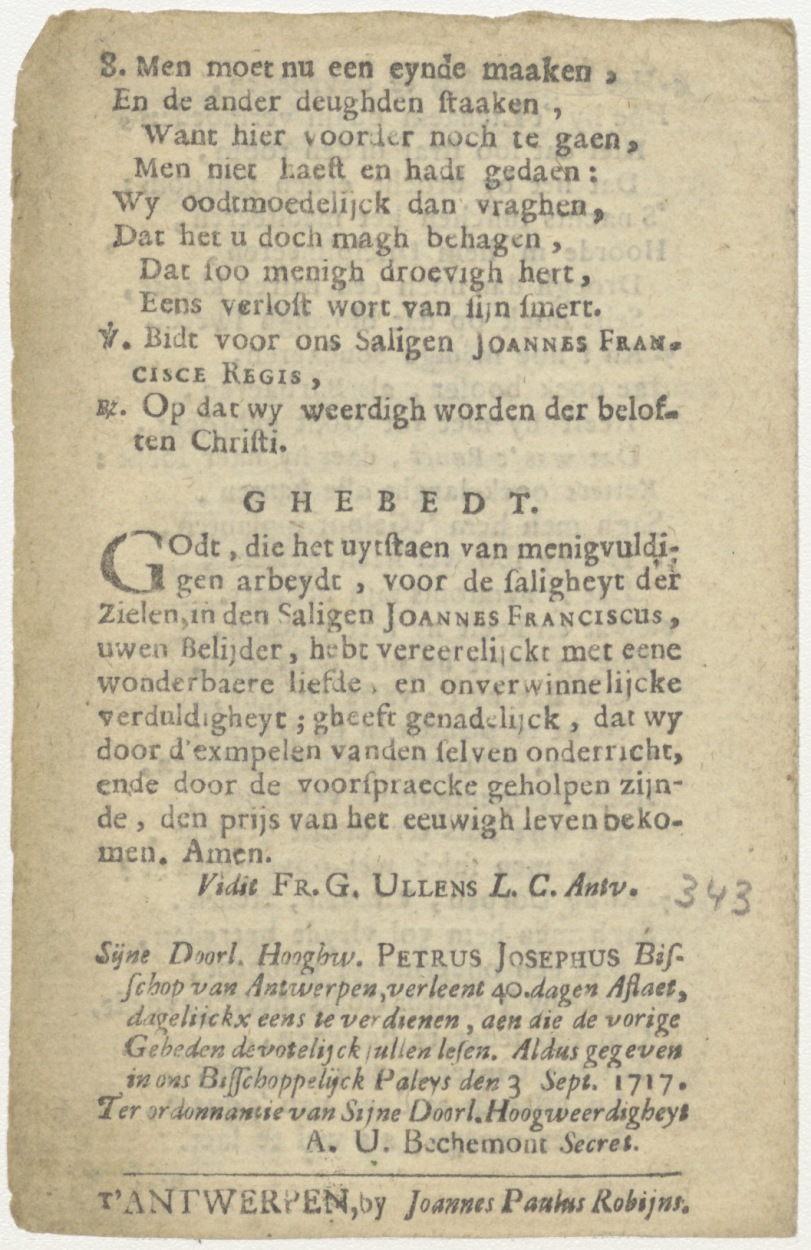 8. Men moet nu een eynde maaken,
En de ander deughden ſtaaken,
Want hier voorder noch te gaen,
Men niet haeſt en hadt gedaen:
Wy oodtmoedelijck dan vraghen,
Dat het u doch magh behagen,
Dat ſoo menigh droevigh hert,
Eens verloſt wort van ſijn ſmert.
℣. Bidt voor ons Saligen JOANNES FRAN-
CISCE REGIS,
℟. Op dat wy weerdigh worden der belof-
ten Chriſti.
GHEBEDT.
GOdt, die het uytſtaen van menigvuldi-
gen arbeydt, voor de ſaligheyt der
Zielen, in den Saligen JOANNES FRANCISCUS,
uwen Belijder, hebt vereerelijckt met eene
wonderbaere liefde, en onverwinnelijcke
verduldigheyt; gheeft genadelijck, dat wy
door d'exmpelen vanden ſelven onderricht,
ende door de voorſpraecke geholpen zijn-
de, den prijs van het eeuwigh leven beko-
men. Amen.
Vidit FR. G. ULLENS L. C. Antv. 343
Sijne Doorl. Hooghw. PETRUS JOSEPHUS Biſ-
ſchop van Antwerpen, verleent 40. dagen Aflaet,
dagelijckx eens te verdienen, aen die de vorige
Gebeden devotelijck ſullen leſen. Aldus gegeven
in ons Biſſchoppelijck Paleys den 3 Sept. 1717.
Ter ordonnantie van Sijne Doorl. Hoogweerdigheyt
A. U. Bechemont Secret.
T'ANTWERPEN, by Joannes Paulus Robijns.